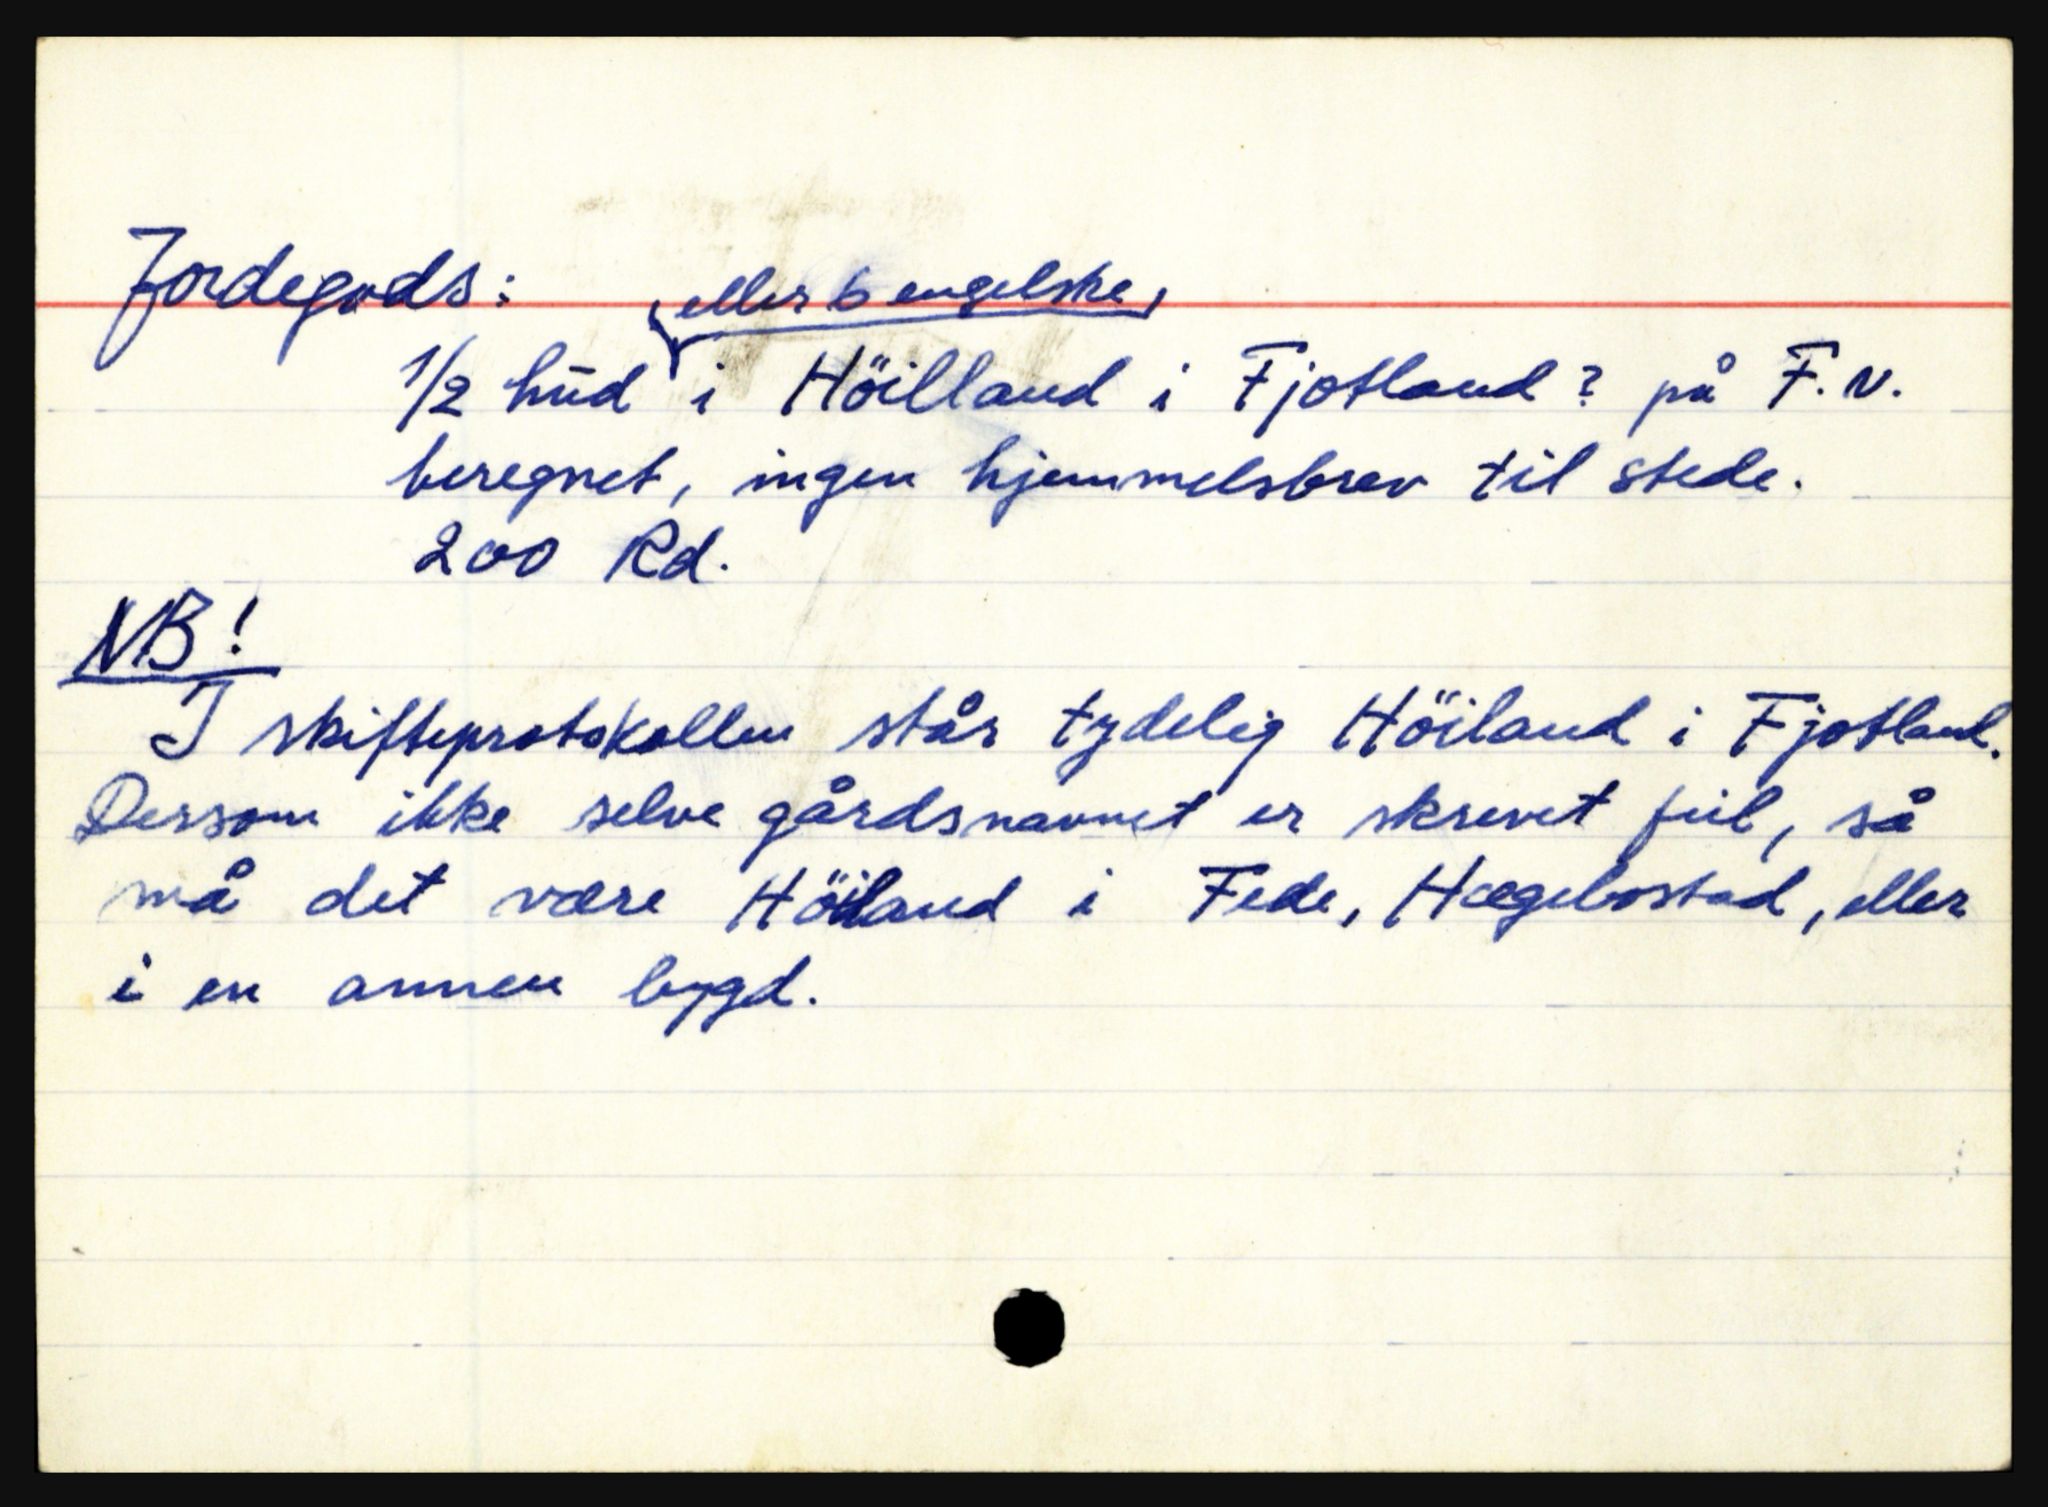 Jordegods:
eller 6 engelske,
1/2 hud i Höilland i Fjotland? på F.N.
beregnet, ingen hjemmelsbrev til stede.
200 Rd.
NB!
I skifteprotokollen står tydelig Höiland i Fjotland.
Dersom ikke selve gårdsnavnet er skrevet feil, så
må det være Höiland i Fede, Hægebostad, eller
i en annen bygd.